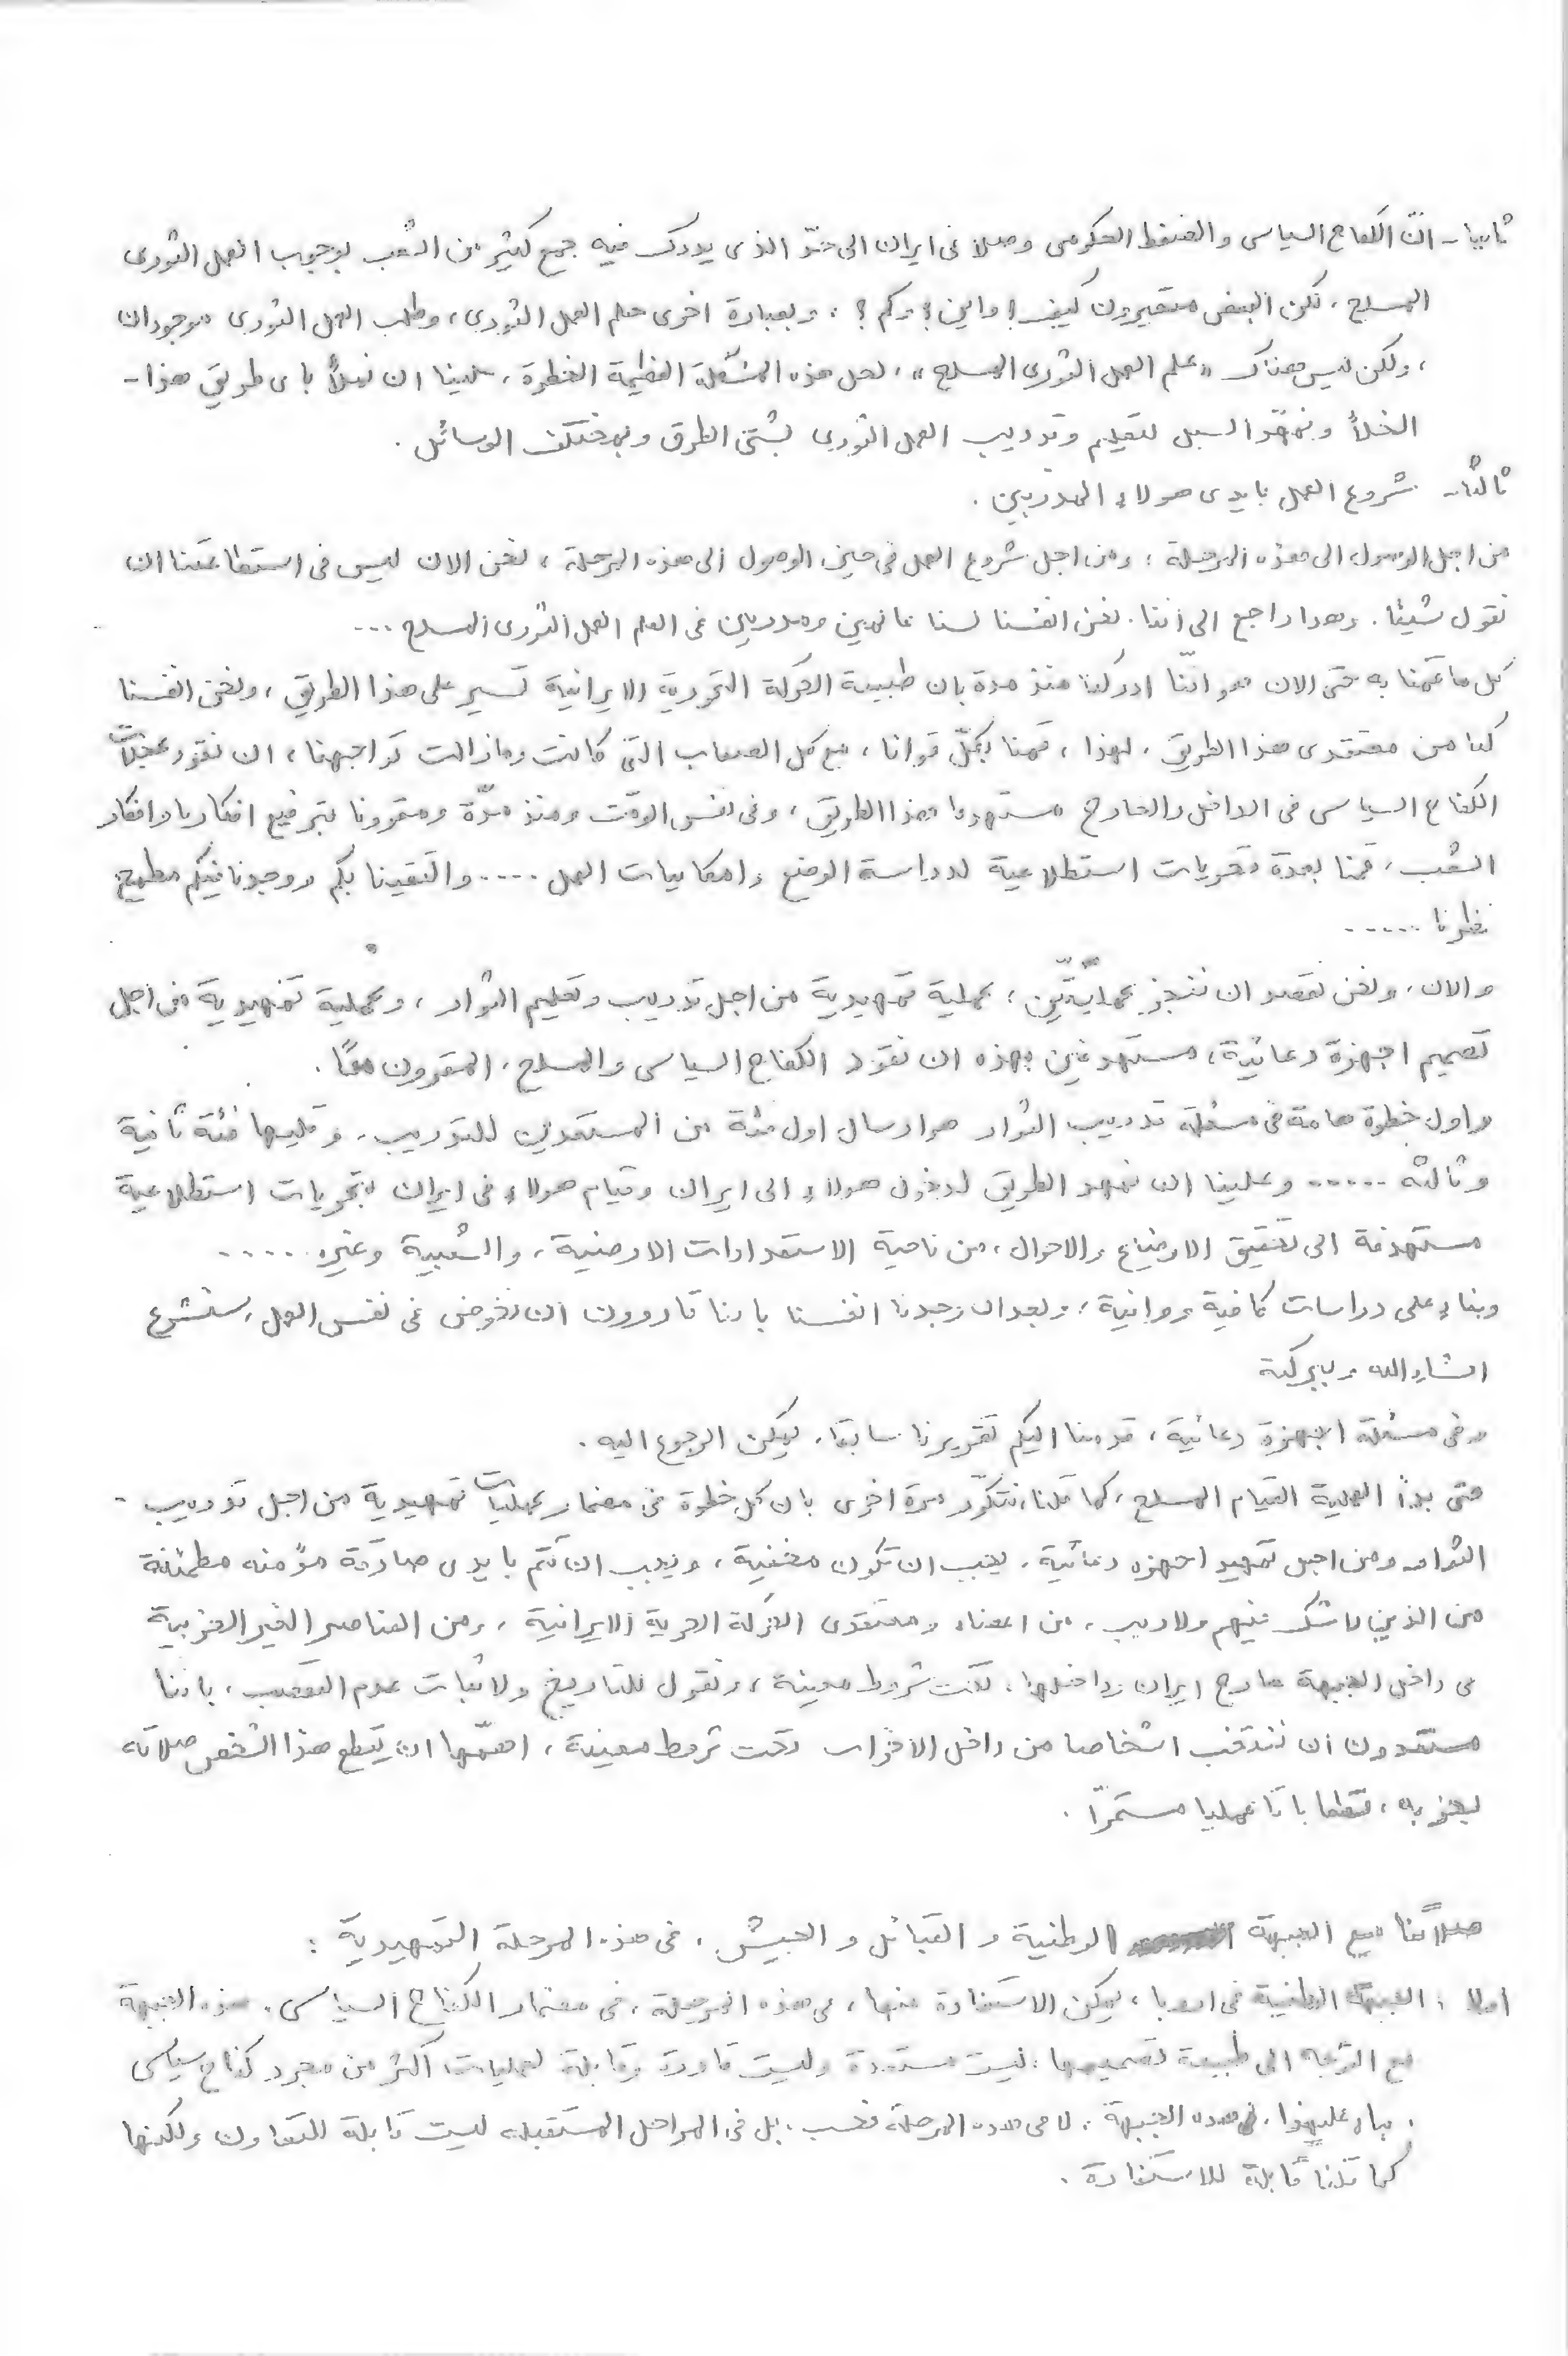 ثانيا - انّ الكفاح السياسى والضغط الحكومى وصلا فى ايران الى حدّ الذى يدرك فيه جمع كثير من الشعب بوجوب العمل الثورى
المسلح ، لكن البعض متحيرون كيف ؟ واين ؟ وكم ؟ ، وبعبارة اخرى حلم العمل الثورى ، وطلب العمل الثورى موجودان
، ولكن ليس هناك « علم العمل الثورى المسلح » ، لحل هذه المشكلة العظيمة الخطرة ، علينا ان نملأ باى طريق هذا -
الخلأ ونمهّد السبل لتعليم وتدريب العمل الثورى بشتى الطرق وبمختلف الوسائل .
ثالثا - شروع العمل بايدى هولاء المدربين .
من اجل الوصول الى هذه المرحلة ، ومن اجل شروع العمل فى حين الوصول الى هذه المرحلة ، نحن الان ليس فى استطاعتنا ان
نقول شيئا . وهذا راجع الى اننا . نحن انفسنا لسنا عالمين ومدربين فى العلم العمل الثورى المسلح ...
كل ما قمنا به حتى الان هو انّنا ادركنا منذ مدة بان طبيعة الحركة التحررية الايرانية تسير على هذا الطريق ، ونحن انفسنا
كنا من معتقدى هذا الطريق . لهذا ، قمنا بكلّ قوانا ، مع كل الصعاب التى كانت ومازالت تواجهنا ، ان نقود عجلات
الكفاح السياسى فى الداخل والخارج مستهدفا هذا الطريق ، وفى نفس الوقت ومنذ مدّة ومقرونا بترفيع افكارنا وافكار
الشعب ، قمنا بعدة تحريات استطلاعية لدراسة الوضع وامكانيات العمل .... والتقينا بكم ووجدنا فيكم مطمح
نظرنا .....
والان ، ونحن نقصد ان ننجز عمليّتين ؛ عملية تمهيدية من اجل تدريب وتعليم الثوار ، وعملية تمهيدية من اجل
تصميم اجهزة دعائية ، مستهدفين بهذه ان نقود الكفاح السياسى والمسلح ، المقرون معًا .
واول خطوة هامة فى مسئلة تدريب الثوار هو ارسال اول فئة من المستعدين للتدريب ، وتليها فئة ثانية
وثالثة ..... وعلينا ان نمهد الطريق لدخول هولاء الى ايران وقيام هولاء فى ايران بتحريات استطلاعية
مستهدفة الى تحقيق الاوضاع والاحوال ، من ناحية الاستعدادات الارضية ، والشعبية وغيره .....
وبناء على دراسات كافية ووافية ، وبعد ان وجدنا انفسنا باننا قادرون ان نخوض فى نفس العمل ، سنشرع
انشاءالله وببركته
وفى مسئلة الاجهزة دعائية ، قدمنا اليكم تقريرنا سابقا . يمكن الرجوع اليه .
حتى بدأ العملية القيام المسلح ، كما قلنا ، نتكرّر مرة اخرى بان كل خطوة فى مضمار عمليات تمهيدية من اجل تدريب -
الثوار ومن اجل تمهيد اجهزه دعائية ، يجب ان تكون مخفية ، ويجب ان تتم بايدى صادقة مؤمنه مطمئنة
من الذين لاشك فيهم ولا ريب ، من اعضاء ومعتقدى الحركة الحرية الايرانية ، ومن العناصر الغير الحزبية
فى داخل الجبهة خارج ايران وداخلها ، تحت شروط معينة ، ونقول للتاريخ ولاثبات عدم التعصب ، باننا
مستعدون ان ننتخب اشخاصا من داخل الاحزاب تحت شروط معينة ، اهمّها ان يقطع هذا الشخص صلاته
بحزبه ، قطعا باتا عمليا مستمرّا .
صلاتنا مع الجبهة الوطنية و القبائل و الجيش ، فى هذه المرحلة التمهيدية :
اولا ، الجبهة الوطنية فى اوربا ، يمكن الاستفادة منها ، فى هذه المرحلة ، فى مضمار الكفاح السياسى . هذه الجبهة
مع التوجه الى طبيعة تصميمها ، ليست مستعدة وليست قادرة وقابلة لعمليات اكثر من مجرد كفاح سياسى
. بناء عليهذا ، فهذه الجبهة ، لا فى هذه المرحلة فحسب ، بل فى المراحل المستقبلة ليست قابلة للتعاون ولكنها
كما قلنا قابلة للاستفادة .